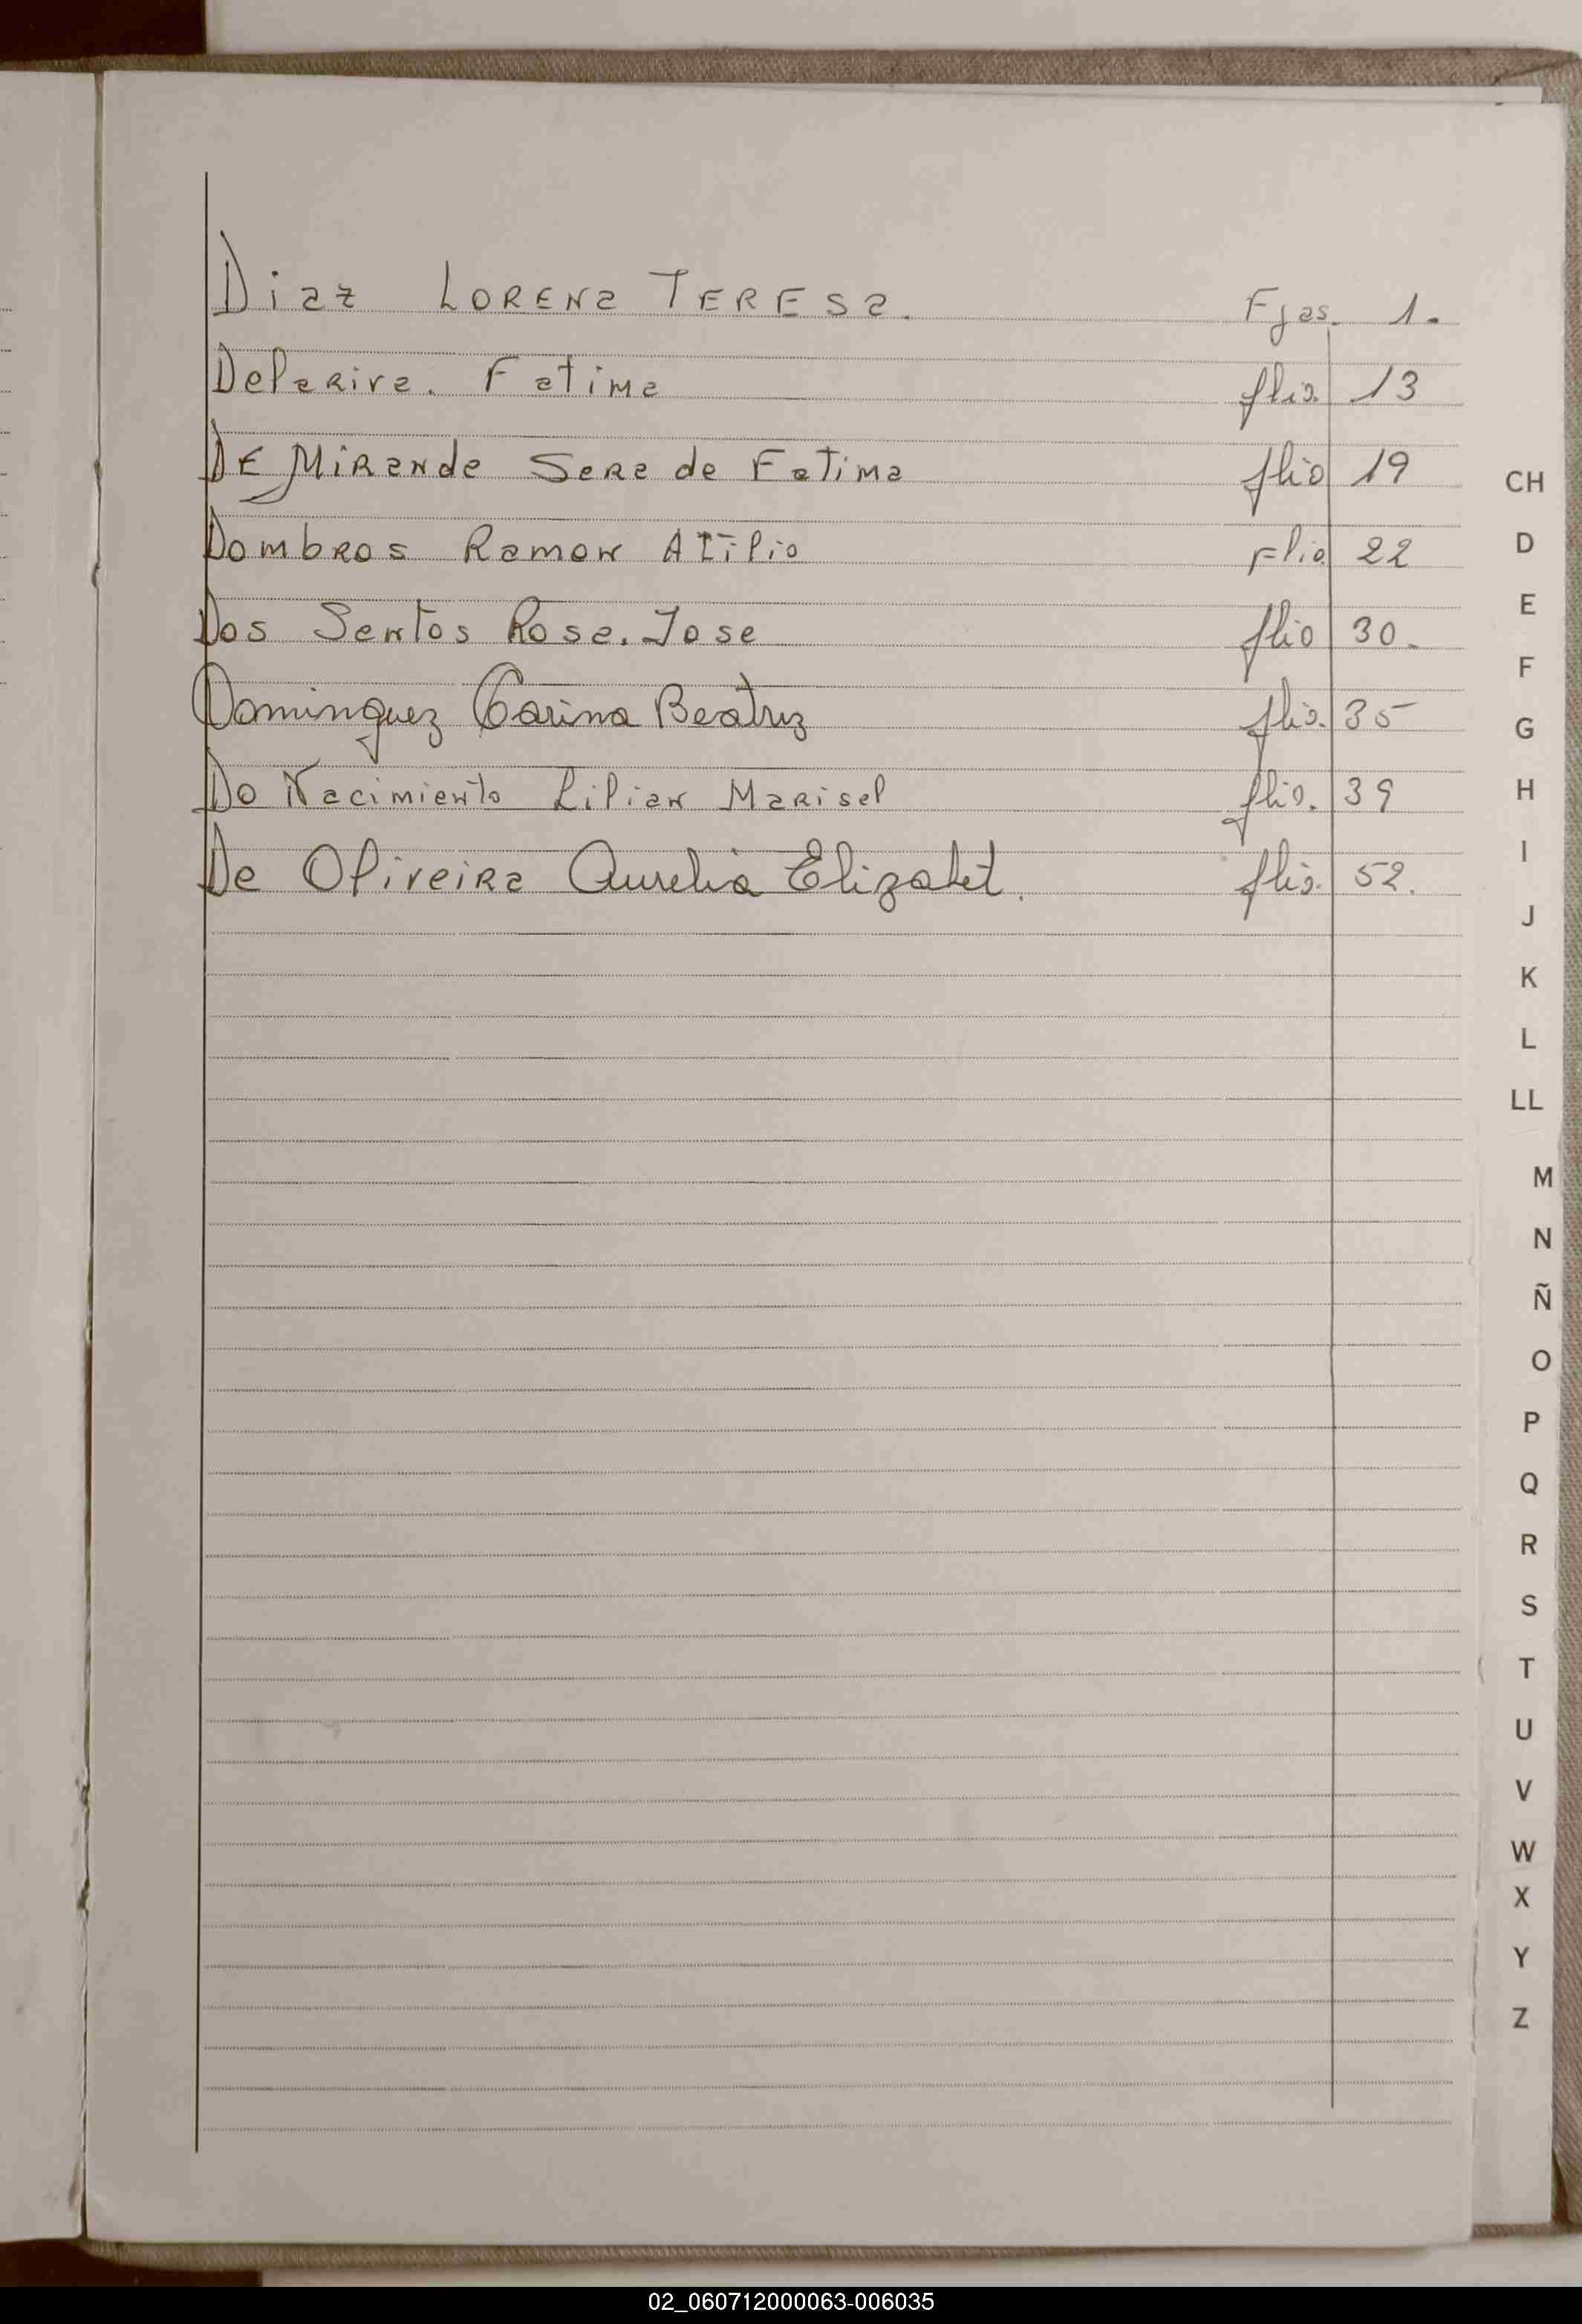 Diaz Lorena Teresa. Fjas. 1.
Delariva. Fatima flio. 13
De Miranda Sara de Fatima flio 19
Dombros Ramon Atilio Flio 22
Dos Santos Rosa. Jose flio 30.
Dominguez Carina Beatriz flio. 35
Do Nacimiento Lilian Marisel flio. 39
De Oliveira Aurelia Elizabet. flio. 52.
CH
D
E
F
G
H
I
J
K
L
LL
M
N
Ñ
O
P
Q
R
S
T
U
V
W
X
Y
Z
02_060712000063-006035